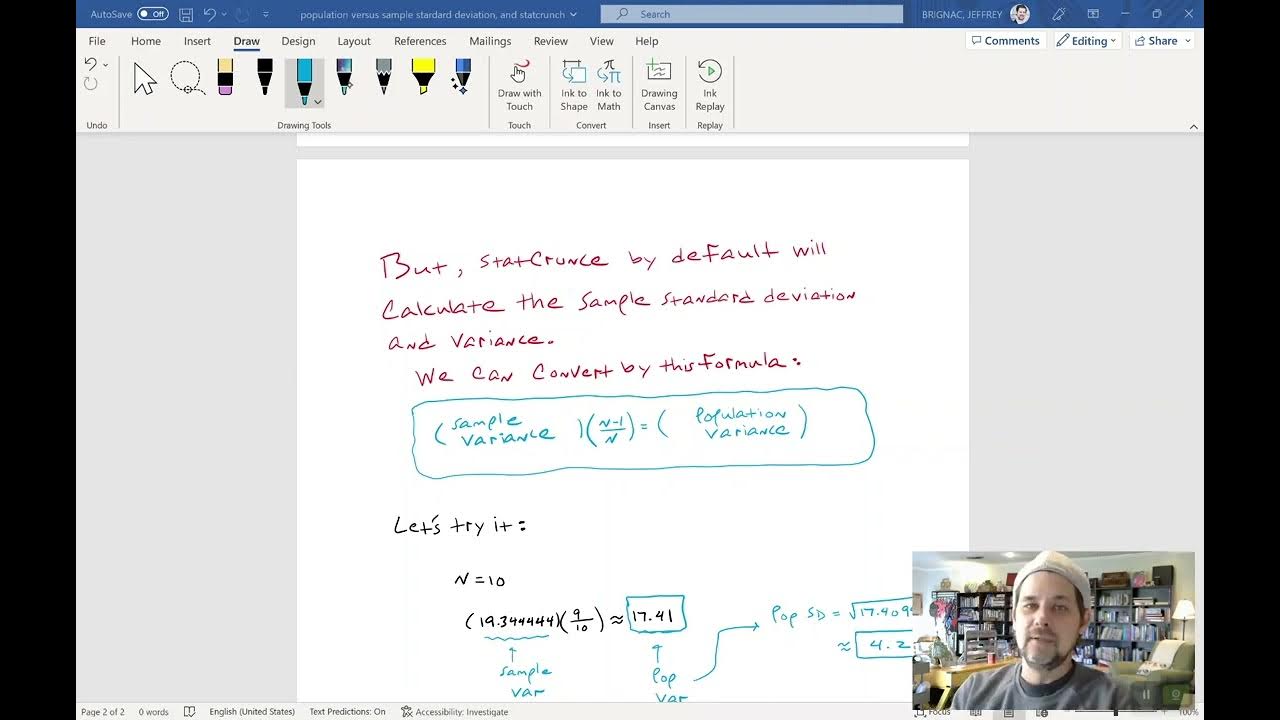 AutoSave Off population versus sample stardard deviation, and statcrunch Search BRIGNAC, JEFFREY
File Home Insert Draw Design Layout References Mailings Review View Help Comments Editing Share
Undo
Drawing Tools
Draw with Touch
Touch
Ink to Shape
Ink to Math
Convert
Drawing Canvas
Insert
Ink Replay
Replay
But, statCrunce by default will
Calculate the sample standard deviation
and variance.
We can convert by this formula:
(sample variance)(N-1/N) = (population variance)
Let's try it:
N = 10
(19.344444)(9/10) ≈ 17.41
Pop SD = √17.409
≈ 4.2
↑ sample var
↑ pop var
Page 2 of 2 0 words English (United States) Text Predictions: On Accessibility: Investigate Focus 100%